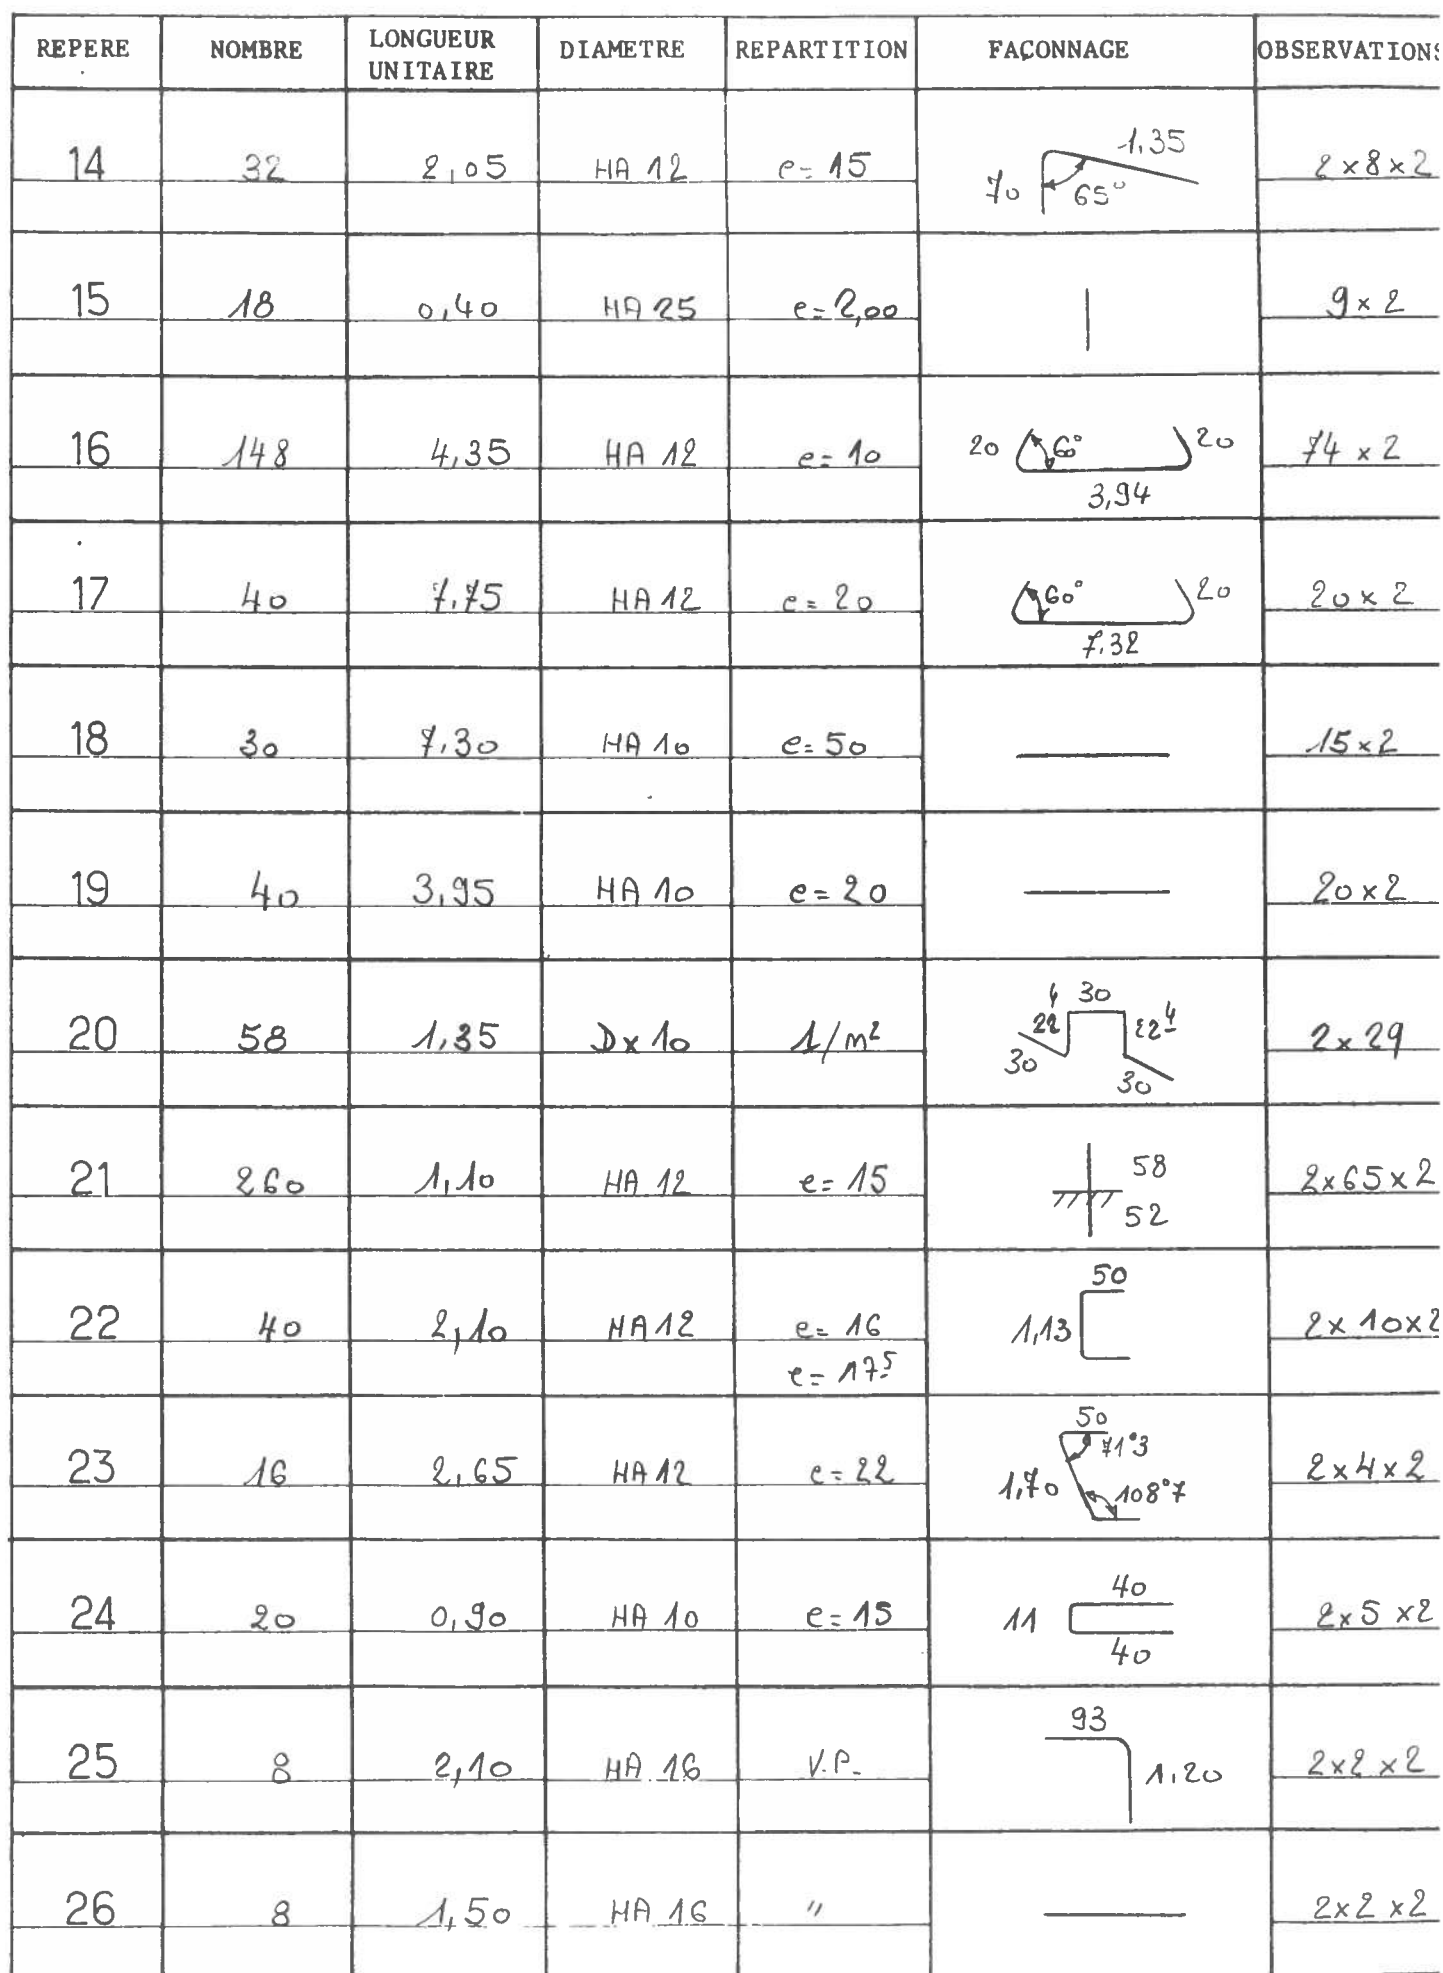 REPERE NOMBRE LONGUEUR UNITAIRE DIAMETRE REPARTITION FAÇONNAGE OBSERVATIONS
14 32 2,05 HA 12 e= 15 70 65° 1,35 2x8x2
15 18 0,40 HA 25 e= 2,00 9x2
16 148 4,35 HA 12 e= 10 20 60° 20 3,94 74 x 2
17 40 7.75 HA 12 e= 20 60° 20 7.32 20 x 2
18 30 7.30 HA 10 e= 50 15x2
19 40 3,95 HA 10 e= 20 20x2
20 58 1,35 Dx 10 1/m² 30 22 4 30 22 4 30 2x 29
21 260 1,10 HA 12 e= 15 58 52 2x65x2
22 40 2,10 HA 12 e= 16 e= 17 5 50 1,13 2x 10x2
23 16 2,65 HA 12 e= 22 50 71°3 1,70 108°7 2x4x2
24 20 0,90 HA 10 e= 15 40 11 40 2x5 x2
25 8 2,10 HA 16 V.P. 93 1,20 2x2 x2
26 8 1,50 HA 16 " 2x2 x2